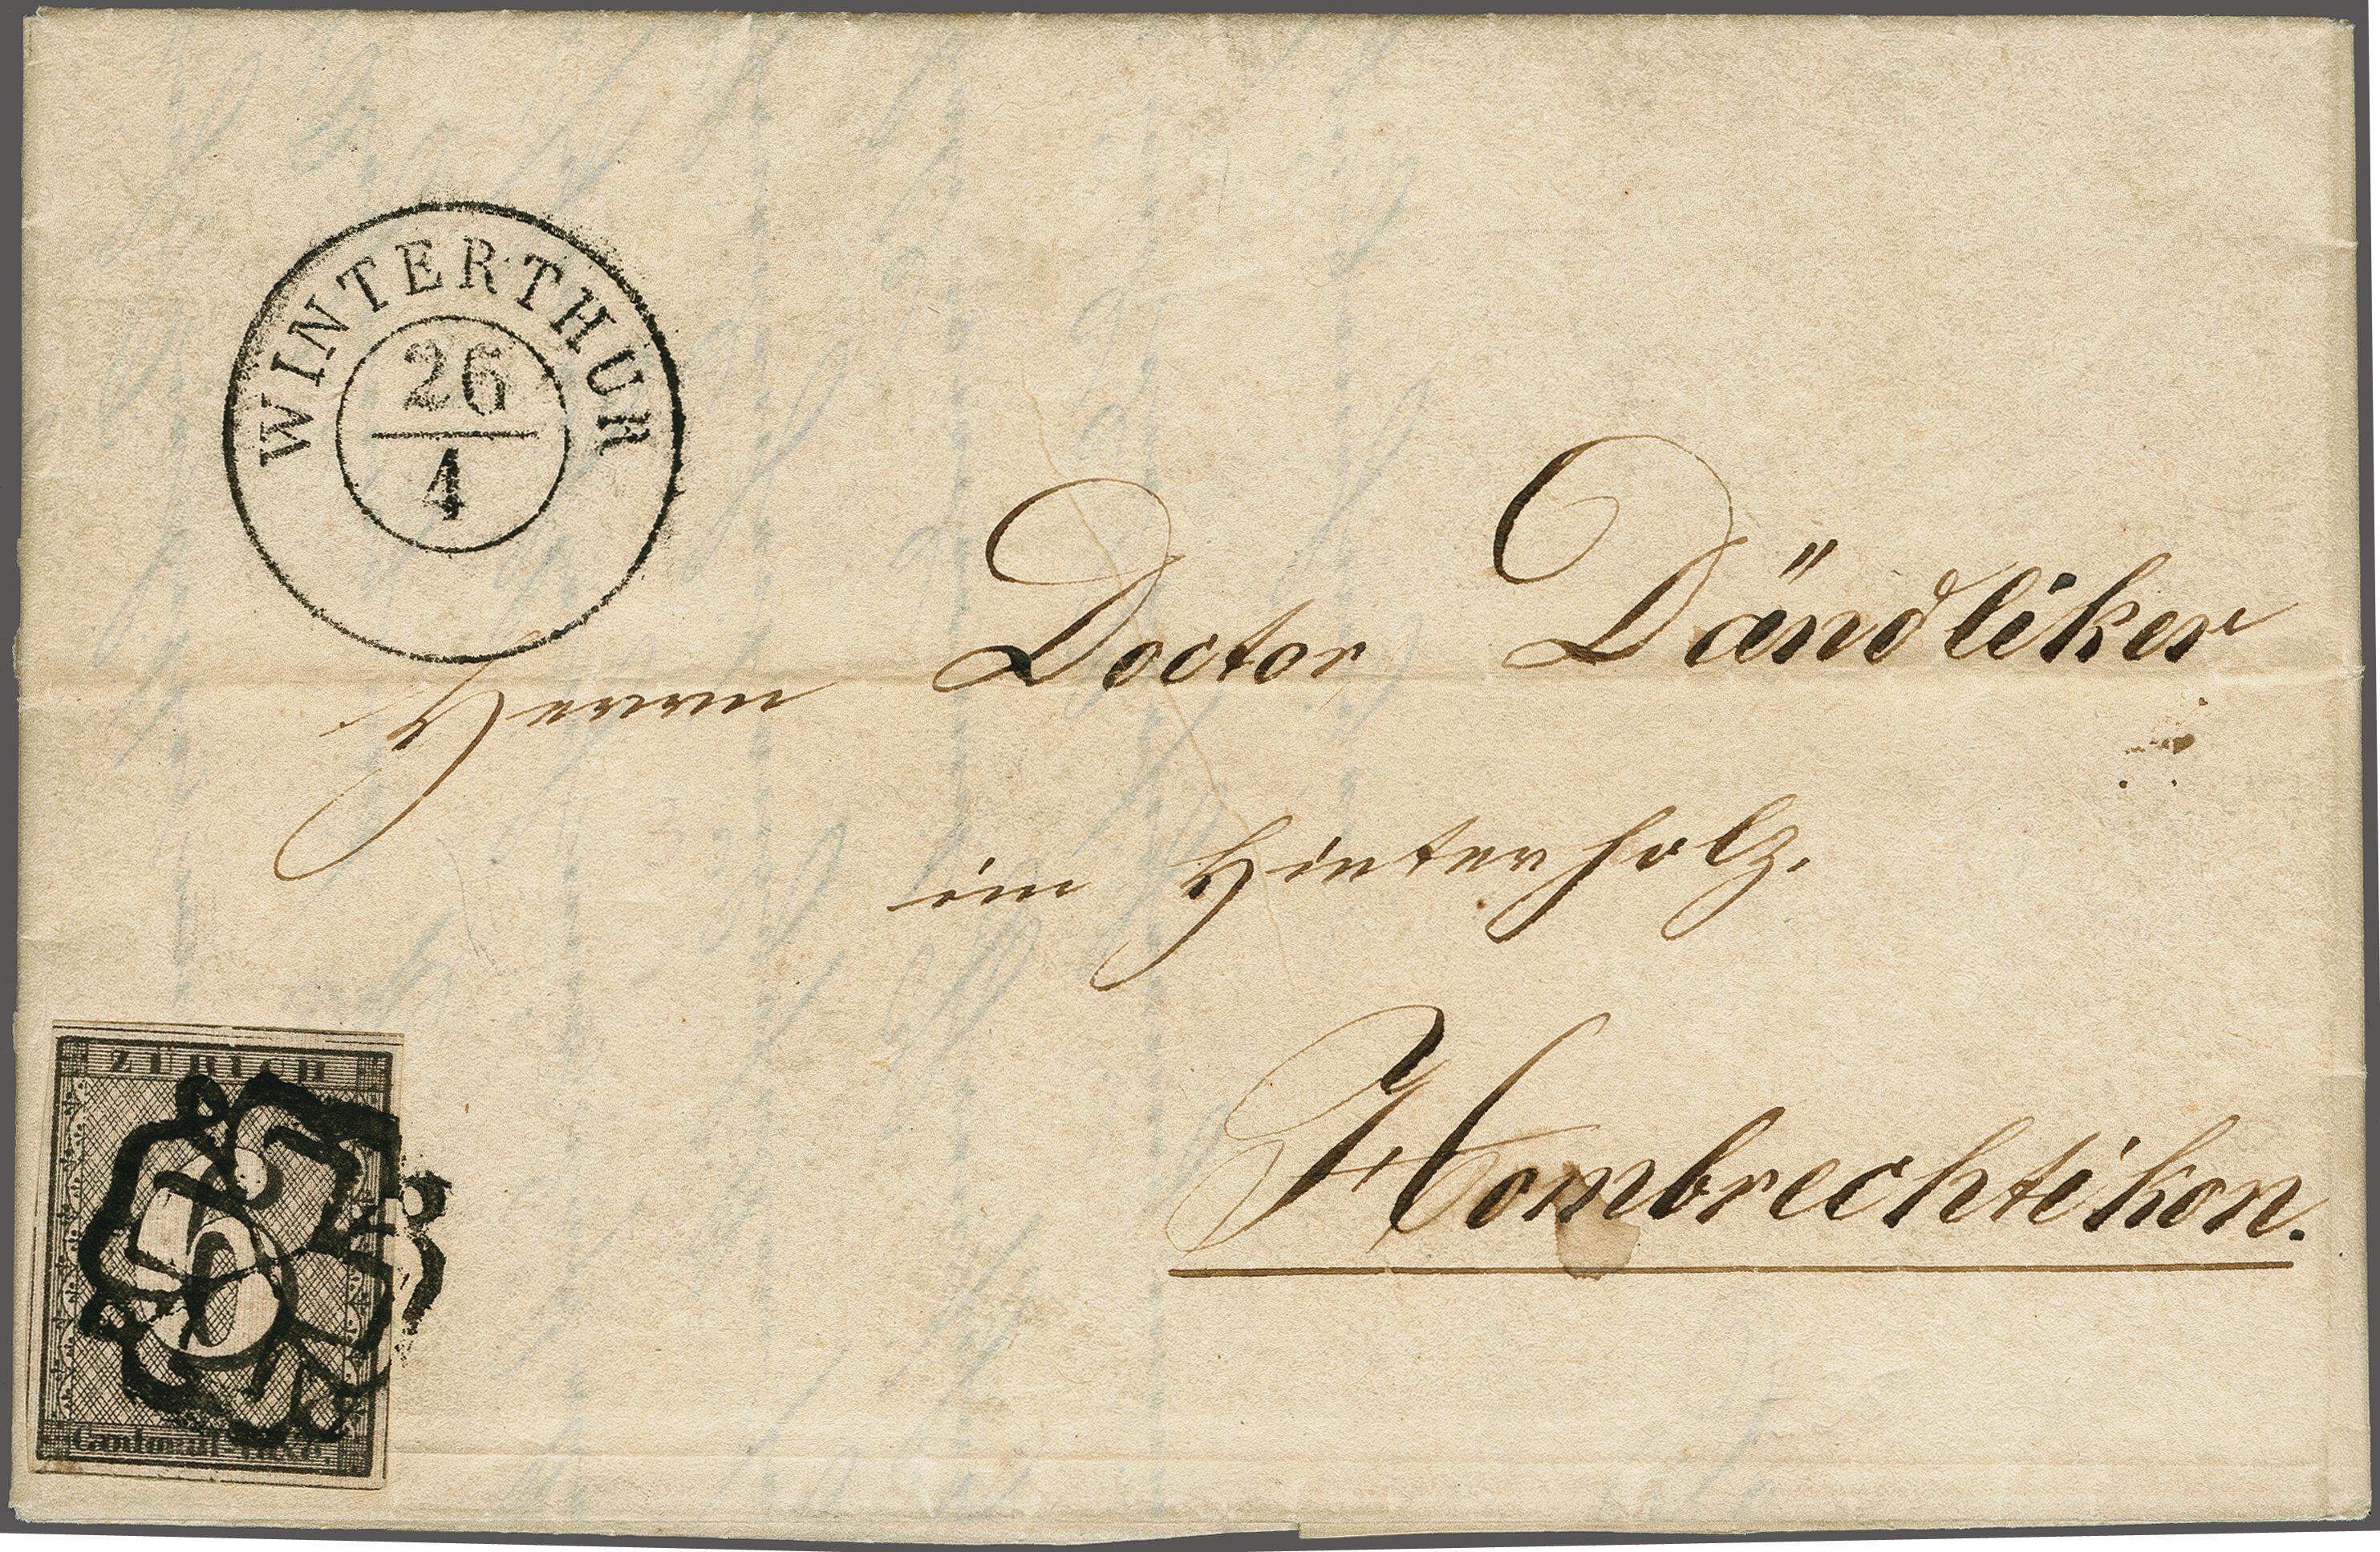 WINTERTHUR
26
4
Herrn Doctor Dändliker
im Hinterholz.
Hombrechtikon.
ZÜRICH
6
Cantonal-Taxe.